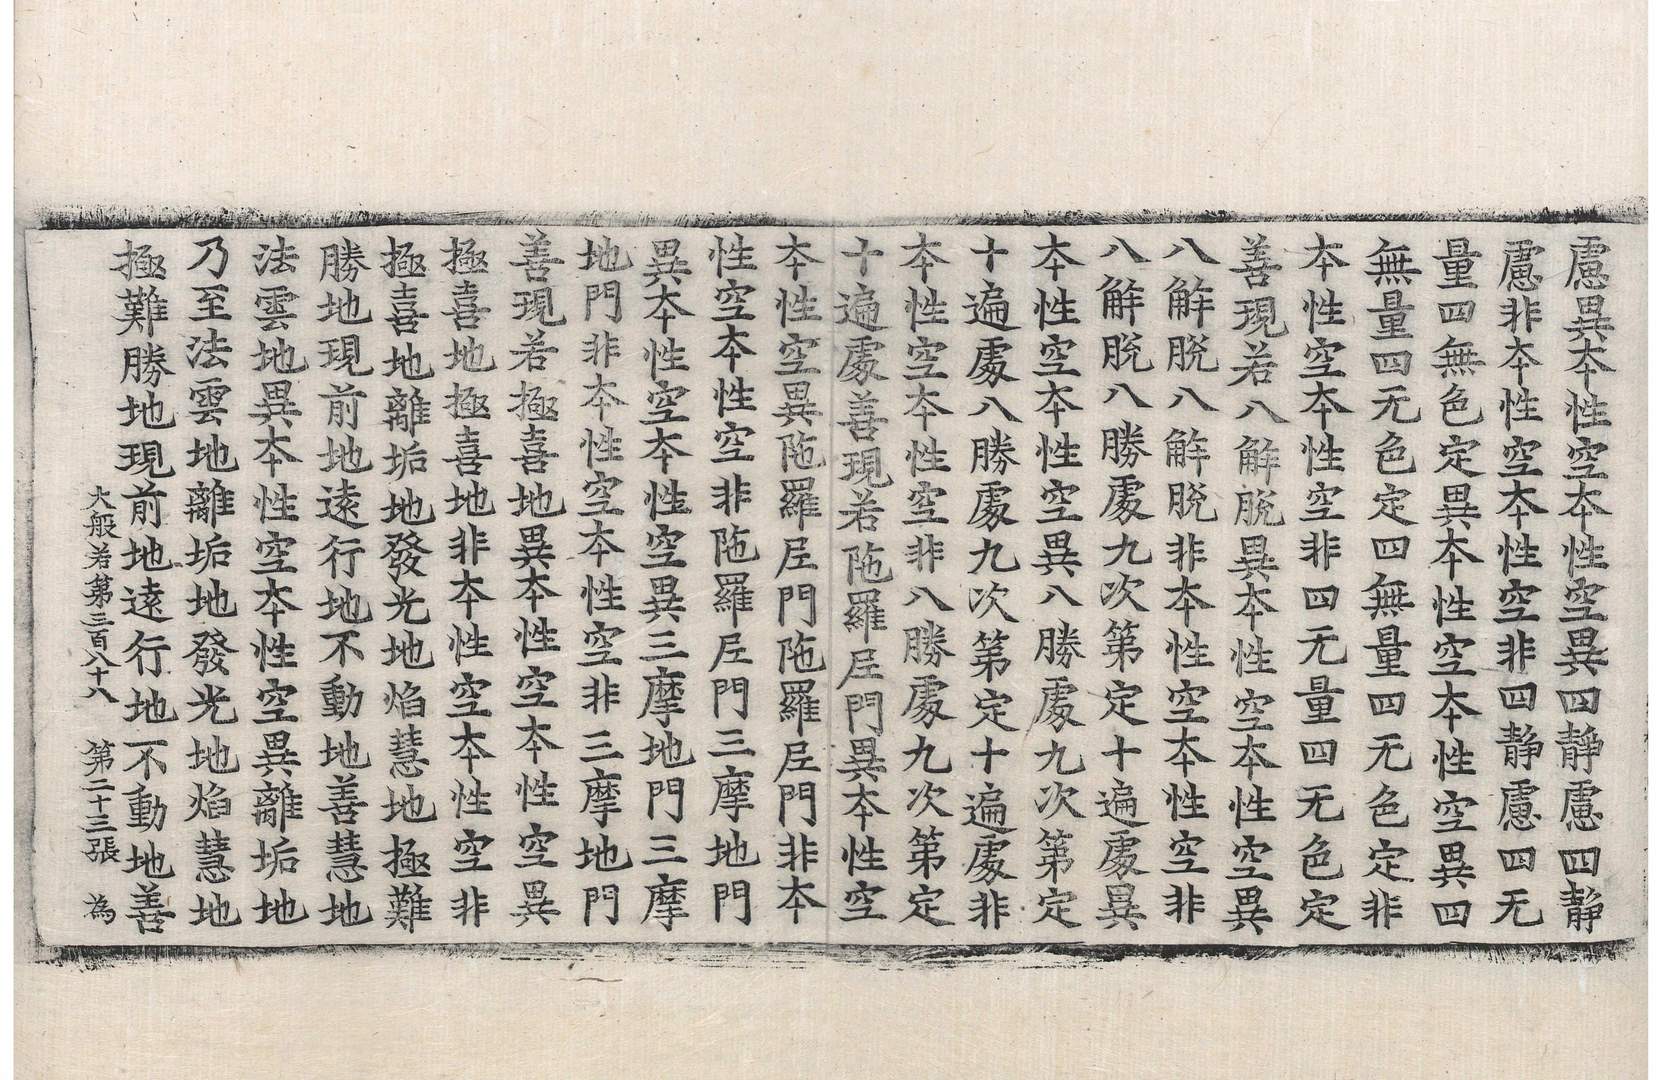 慮異本性空本性空異四靜慮四靜
慮非本性空本性空非四靜慮四无
量四無色定異本性空本性空異四
無量四无色定四無量四无色定非
本性空本性空非四无量四无色定
善現若八解脫異本性空本性空異
八解脫八解脫非本性空本性空非
八解脫八勝處九次第定十遍處異
本性空本性空異八勝處九次第定
十遍處八勝處九次第定十遍處非
本性空本性空非八勝處九次第定
十遍處善現若陁羅尼門異本性空
本性空異陁羅尼門陁羅尼門非本
性空本性空非陁羅尼門三摩地門
異本性空本性空異三摩地門三摩
地門非本性空本性空非三摩地門
善現若極喜地異本性空本性空異
極喜地極喜地非本性空本性空非
極喜地離垢地發光地焰慧地極難
勝地現前地遠行地不動地善慧地
法雲地異本性空本性空異離垢地
乃至法雲地離垢地發光地焰慧地
極難勝地現前地遠行地不動地善
大般若第三百八十八 第二十三張 為